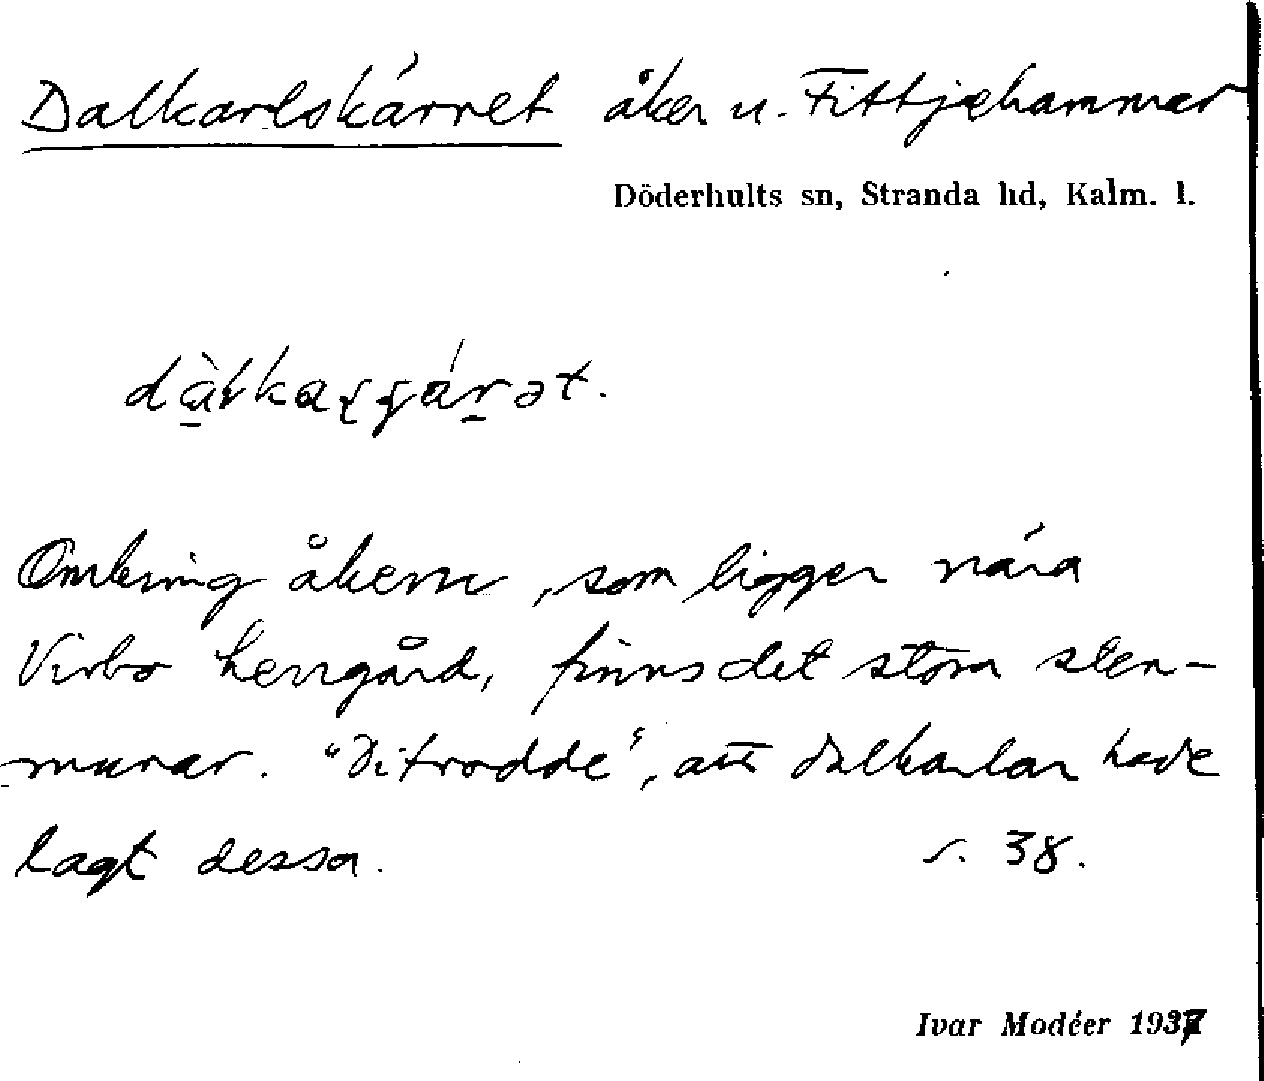 Dalkarlskärret åker u. Fittjehammar
Döderhults sn, Stranda hd, Kalm. l.
Omkring åkern, som ligger nära
Virbo herrgård, finns det stora sten-
murar. "Di trodde", att dalkarlar hade
lagt dessa. s. 38.
Ivar Modéer 1937